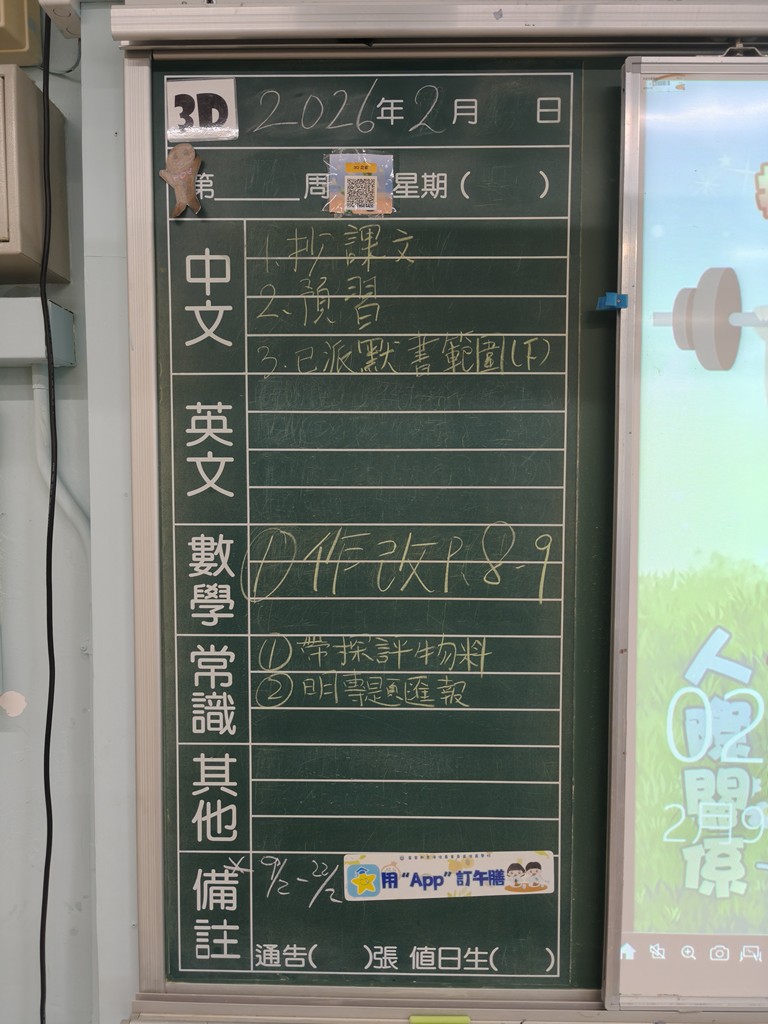 3D 2026年2月 日
第 周 星期( )
中文
1.抄課文
2.預習
3.已派默書範圍(下)
英文
數學
① 作改P.8-9
常識
① 帶探評物料
② 明專題匯報
其他
備註
9/2-22/2
用“App”訂午膳
通告( )張 值日生( )
人際關係
02
2月9